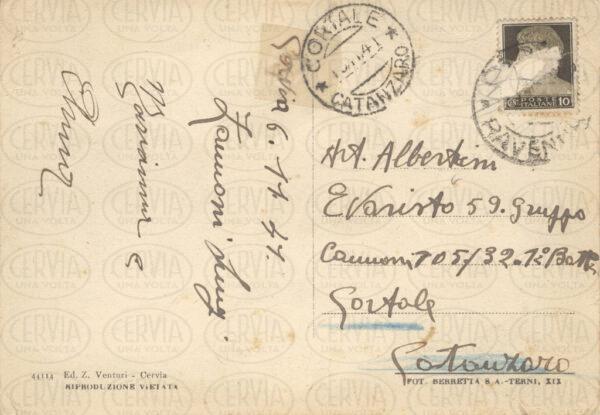 CORTALE
CATANZARO
POSTE
ITALIANE
10
RAVENNA
Cervia 6. 11 41
Zannoni Luig.
Marianna e
Art. Albertini
Evaristo 59. Gruppo
Cannoni 105/32. 1ª Batt.
Cortale
Catanzaro
44114 Ed. Z. Venturi - Cervia
RIPRODUZIONE VIETATA
FOT. BERRETTA S A.-TERNI, XIX
CERVIA
UNA VOLTA